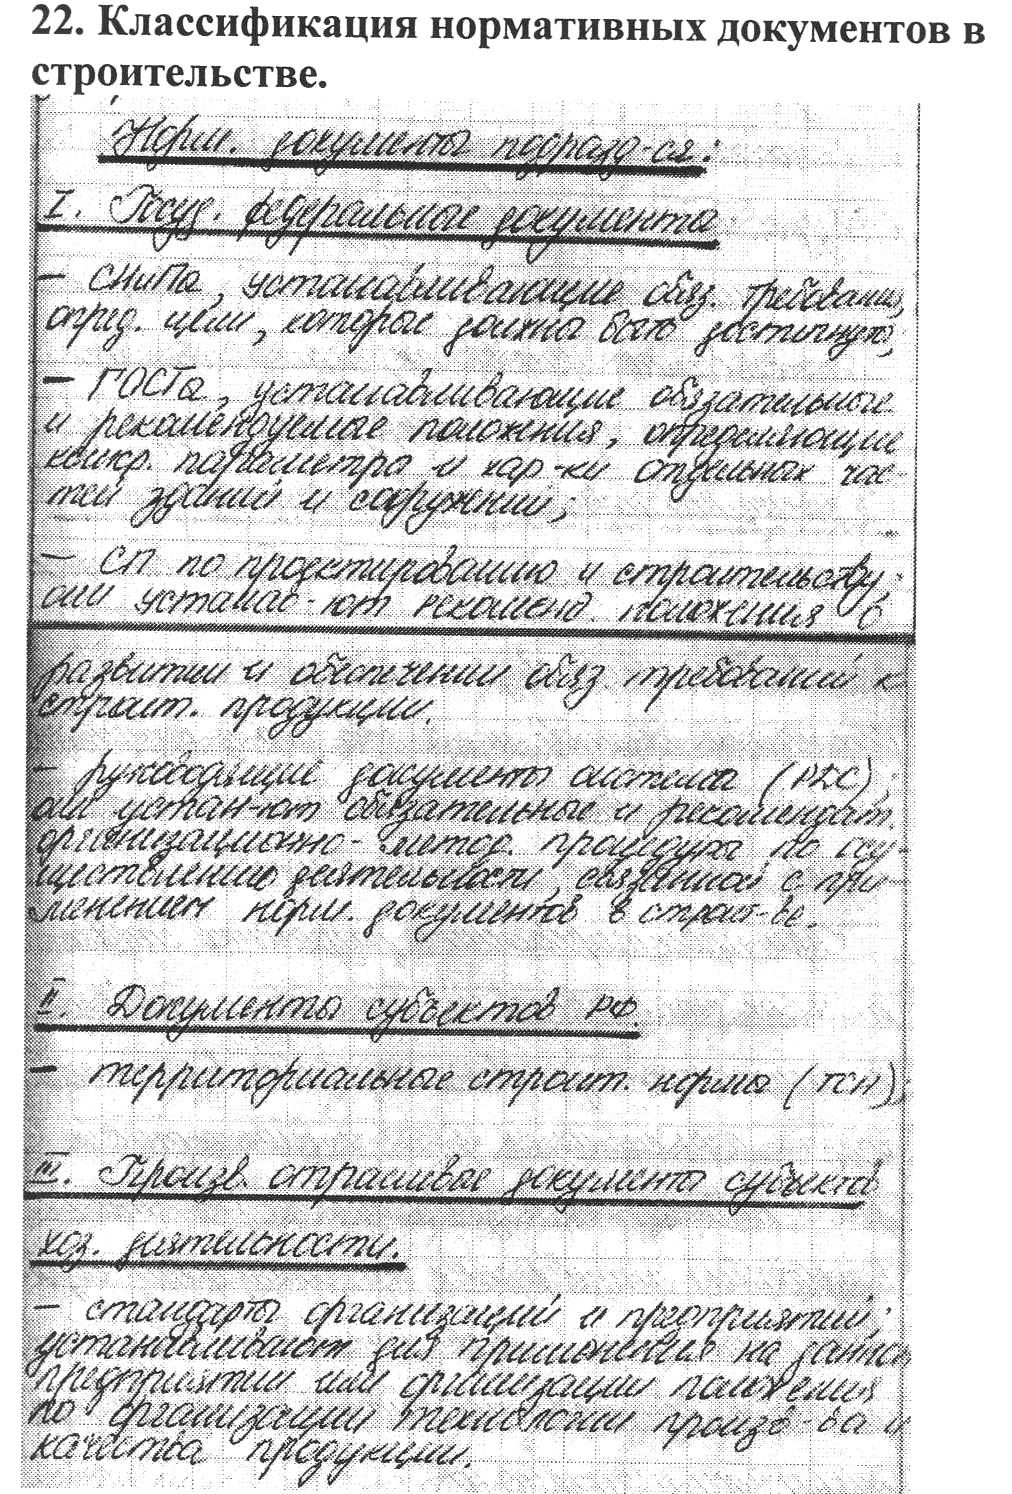 22. Классификация нормативных документов в
строительстве.
Норм. документы подразд-ся:
I. Госуд. федеральные документы
– СНиПы, устанавливающие обяз. требования,
опред. цели, которые должны быть достигнуты,
– ГОСТы, устанавливающие обязательные
и рекомендуемые положения, определяющие
конкр. параметры и хар-ки отдельных час-
тей зданий и сооружений;
– СП по проектированию и строительству;
они устанав-ют рекоменд. положения в
развитии и обеспечении обяз. требований к
строит. продукции.
– руководящие документы системы (РДС);
они устан-ют обязательные и рекомендат.
организационно-метод. процедуры по осу-
ществлению деятельности, связанной с при-
менением норм. документов в строит-ве.
II. Документы субъектов РФ.
– территориальные строит. нормы (ТСН);
III. Произв. отраслевые документы субъектов
хоз. деятельности.
– стандарты организаций и предприятий;
устанавливают для применения на данном
предприятии или организации положения
по организации технологии произв-ва и
качества продукции.